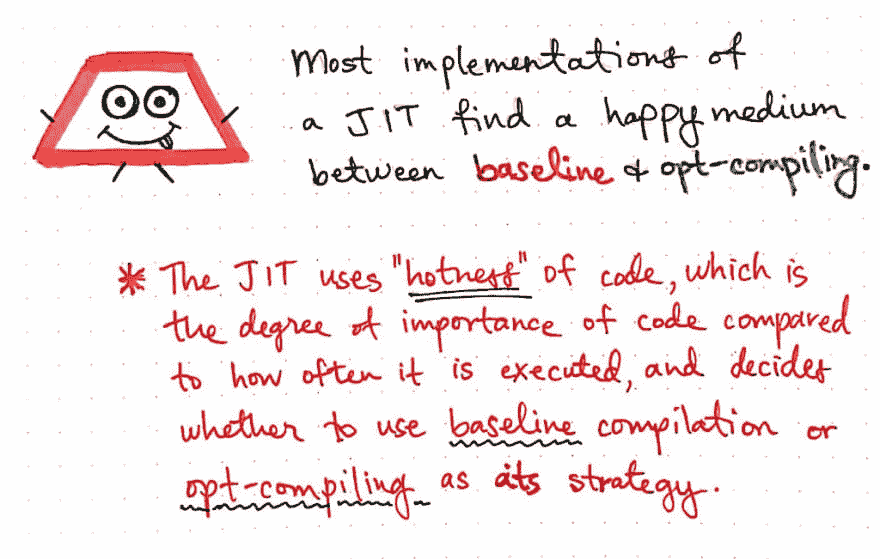 Most implementations of
a JIT find a happy medium
between baseline & opt-compiling.
* The JIT uses "hotness" of code, which is
the degree of importance of code compared
to how often it is executed, and decides
whether to use baseline compilation or
opt-compiling as its strategy.